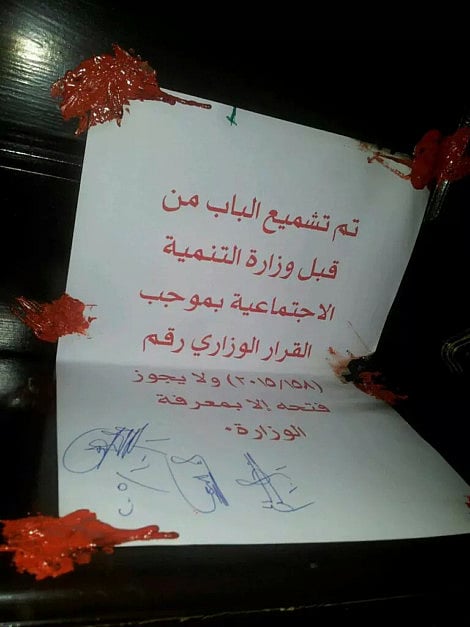 تم تشميع الباب من
قبل وزارة التنمية
الاجتماعية بموجب
القرار الوزاري رقم
(٢٠١٥/١٥٨) ولا يجوز
فتحه إلا بمعرفة
الوزارة.